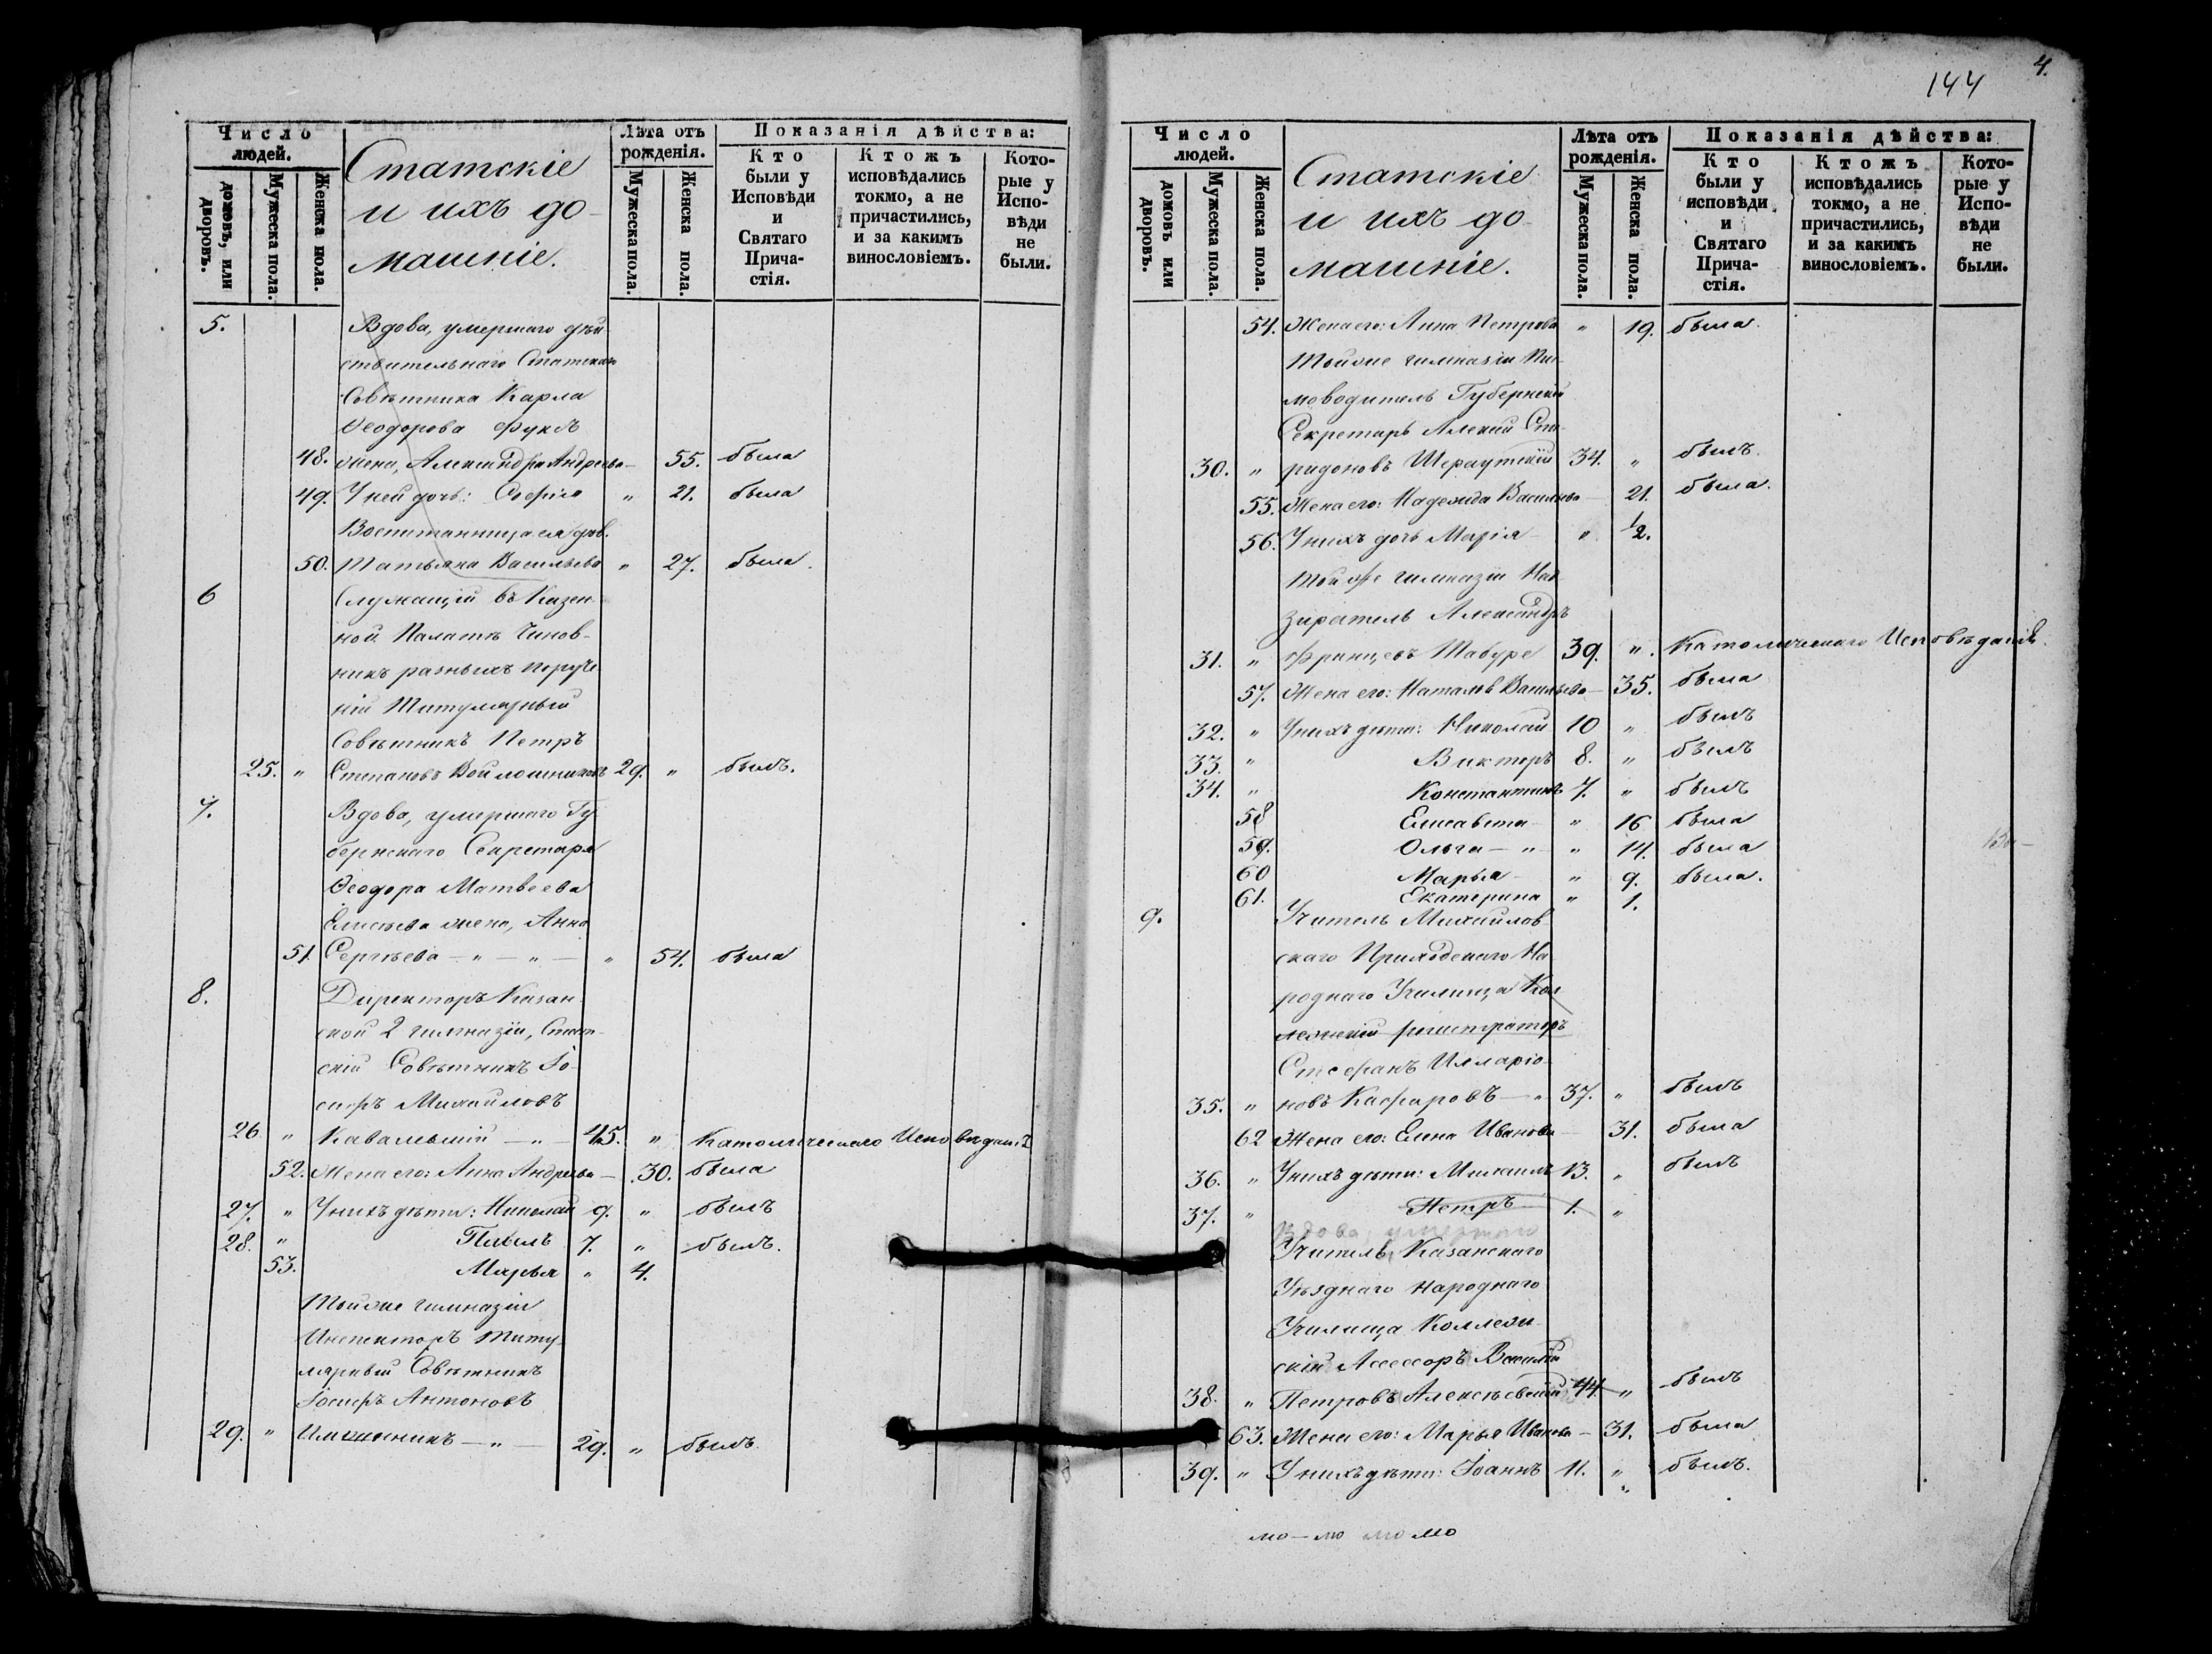 Число людей.
домовъ, или дворовъ.
Мужеска пола.
Женска пола.
Статскіе
и ихъ до-
машніе.
Лѣта отъ рожденія.
Мужеска пола.
Женска пола.
Показанія дѣйства:
Кто были у Исповѣди и Святаго Прича-стія.
Ктожъ исповѣдались токмо, а не причастились, и за какимъ винословіемъ.
Кото-рые у Испо-вѣди не были.
5. Вдова, умершаго дѣй-
ствительнаго Статскаго
Совѣтника Карла
Ѳеодорова Фуксъ
48. жена, Александра Андреева — 55. была
49. У ней дочь: Софія " 21. была
Воспитанница ея дѣв.
50. Татьяна Васильева " 27. была.
6 Служащій въ Казен-
ной Палатѣ Чинов-
никъ разныхъ поруче
ній Титулярный
Совѣтникъ Петръ
25. " Степановъ Войлошниковъ 29. " былъ.
7. Вдова, умершаго Гу-
бернскаго Секретаря
Ѳеодора Матвеева
Елисѣева жена, Анна
51. Сергѣева — " — " — " 54. была
8. Директоръ Казан-
ской 2 гимназіи, Стат-
скій Совѣтникъ Іо-
сифъ Михайловъ
26 " Ковальскій — " — 45. " Католическаго Исповѣданія
52. Жена его: Анна Андреева — 30. была
27. " У нихъ дѣти: Николай 9. " былъ
28. " Павелъ 7. " былъ.
53. Марья " 4.
Той же гимназіи
Инспекторъ Титу-
лярный Совѣтникъ
Іосифъ Антоновъ
29. " — " — 29. " былъ.
144
4.
Число людей.
домовъ или дворовъ.
Мужеска пола.
Женска пола.
Статскіе
и ихъ до-
машніе.
Лѣта отъ рожденія.
Мужеска пола.
Женска пола.
Показанія дѣйства:
Кто были у исповѣди и Святаго Прича-стія.
Ктожъ исповѣдались токмо, а не причастились, и за какимъ винословіемъ.
Кото-рые у Испо-вѣди не были.
54. Жена его: Анна Петрова " 19. была.
Той же гимназіи Пи-
моводитель Губернскій
Секретарь Алексій Спи-
30. " ридоновъ 34. " былъ.
55. Жена его: Надежда Васильева — 21. была.
56. У нихъ дочь Марія — " 1/2.
Той же гимназіи Над-
зиратель Александръ
31. " Францевъ Табуре 39. " Католическаго Исповѣданія.
57. Жена его: Наталья Васильева — 35. была
32. " У нихъ дѣти: Николай 10 " былъ
33. " Викторъ 8. " былъ
34. " Константинъ 7. " былъ
58 Елисавета — " 16 была
59. Ольга — " — " 14. была
60 Марья — " 9. была.
61. Екатерина " 1.
9. Учитель Михайлов-
скаго Приходскаго На-
роднаго Училища Кол-
лежскій регистраторъ
Стефанъ Илларіо-
35. " новъ Кафаровъ — " 37. " былъ
62 Жена его: Елена Иванова — 31. была
36. " У нихъ дѣти: Михаилъ 13. " былъ
37. " Петръ 1. "
Вдова, умершаго
Учитель Казанскаго
Уѣзднаго народнаго
Училища Коллеж-
скій Ассессоръ Василій
38. " Петровъ Алексѣевскій 44. " былъ
63. Жена его: Марья Иванова — 31. была
39. " У нихъ дѣти: Іоаннъ 11. " былъ.
мо — мо мо мо